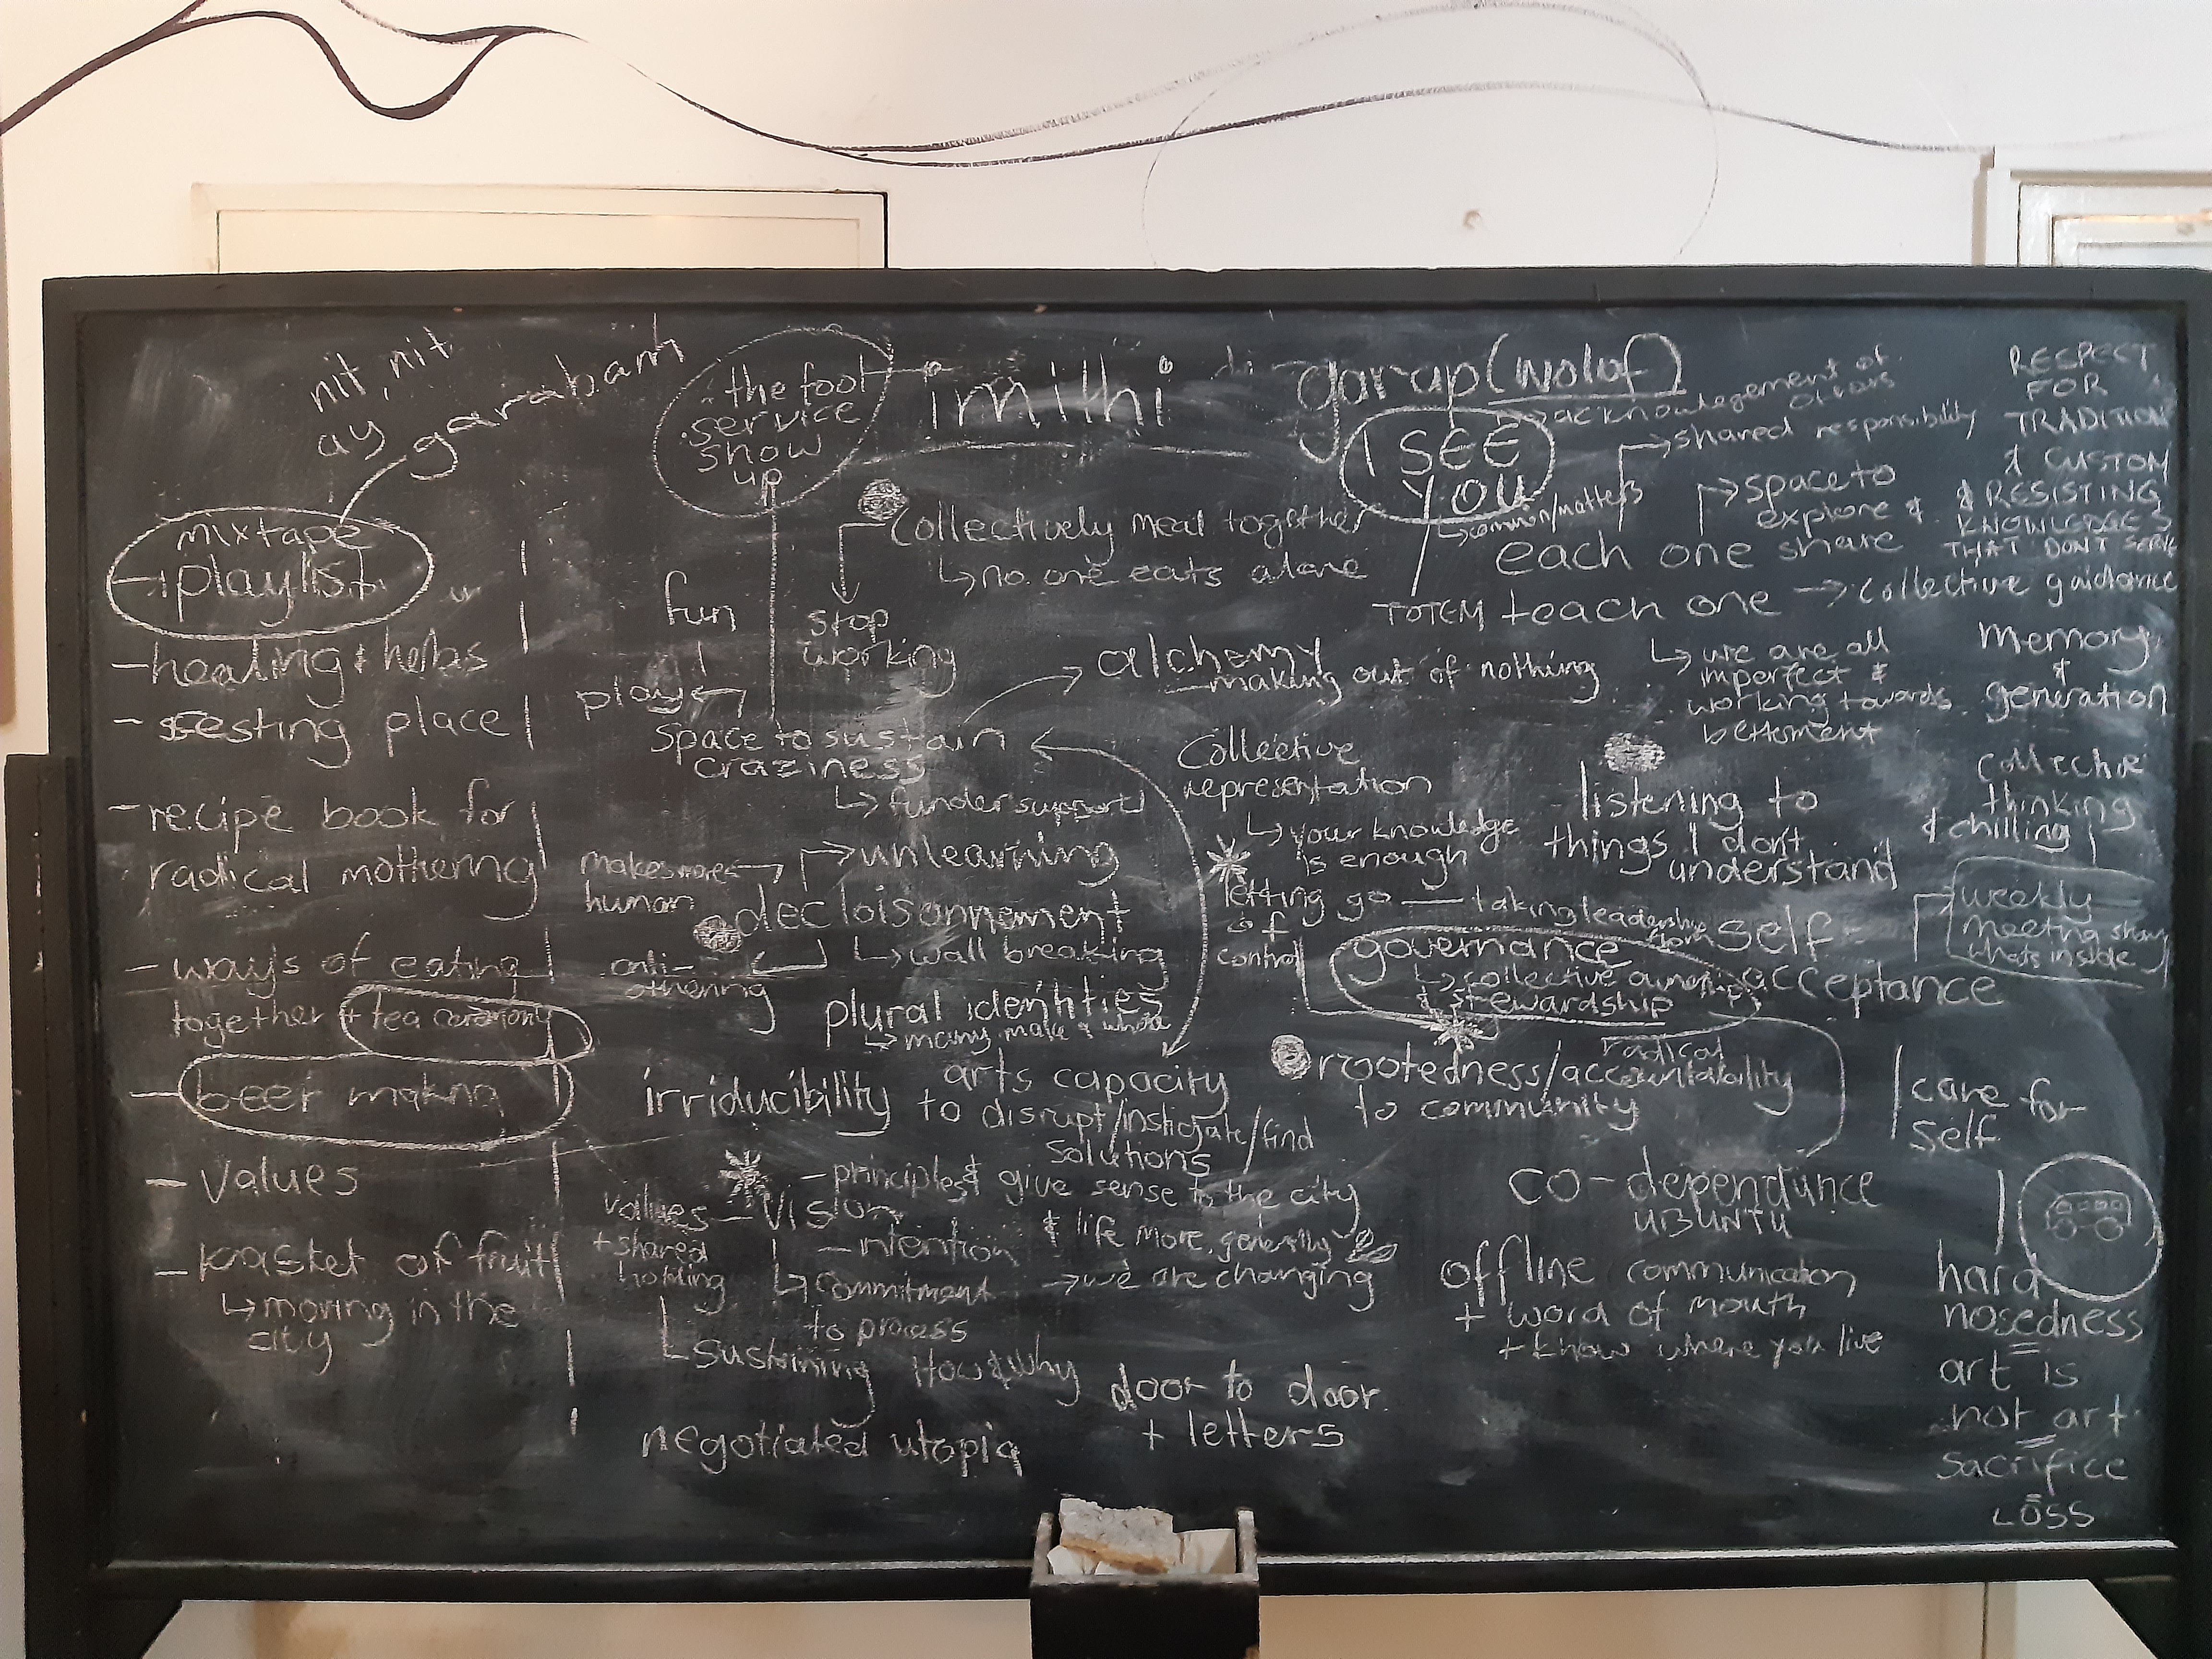 nit, nit
ay garabam
mixtape
playlist
- healing + herbs
- resting place
- recipe book for
radical mothering
- ways of eating
together + tea ceremony
- beer making
- values
- basket of fruit
↳ moving in the
city
the fool
service
show
up
imithi
garap (wolof)
I SEE
YOU
acknowlegement of
shared responsibility
↳ common/matters
Collectively meal together
↳ no one eats alone
stop
working
fun
play
space to sustain
craziness
↳ funder support
alchemy
- making out of nothing
space to
explore &
each one share
TOTEM teach one → collective guidance
↳ we are all
imperfect &
working towards
betterment
RESPECT
FOR
TRADITION
& CUSTOM
& RESISTING
KNOWLEDGES
THAT DON'T SERVE
memory
&
generation
collective
thinking
& chilling
weekly
meeting
whats inside
makes more
human
→ unlearning
decloisonnement
↳ wall breaking
anti-
othering
plural identities
↳ many make a whole
Collective
representation
↳ your knowledge
is enough
letting go — taking leadership from self
of
control
listening to
things I don't
understand
governance
↳ collective
& stewardship
acceptance
radical
rootedness/accountability
to community
irriducibility
arts capacity
to disrupt/instigate/find
solutions
values — vision
+ shared
holding
- principles & give sense to the city
& life more generally
- intention
↳ commitment
to process
→ we are changing
↳ sustaining How & why
negotiated utopia
door to door
+ letters
co-dependance
UBUNTU
offline communication
+ word of mouth
+ know where you live
care for
self
hard
nosedness
=
art is
not art
=
sacrifice
=
LOSS